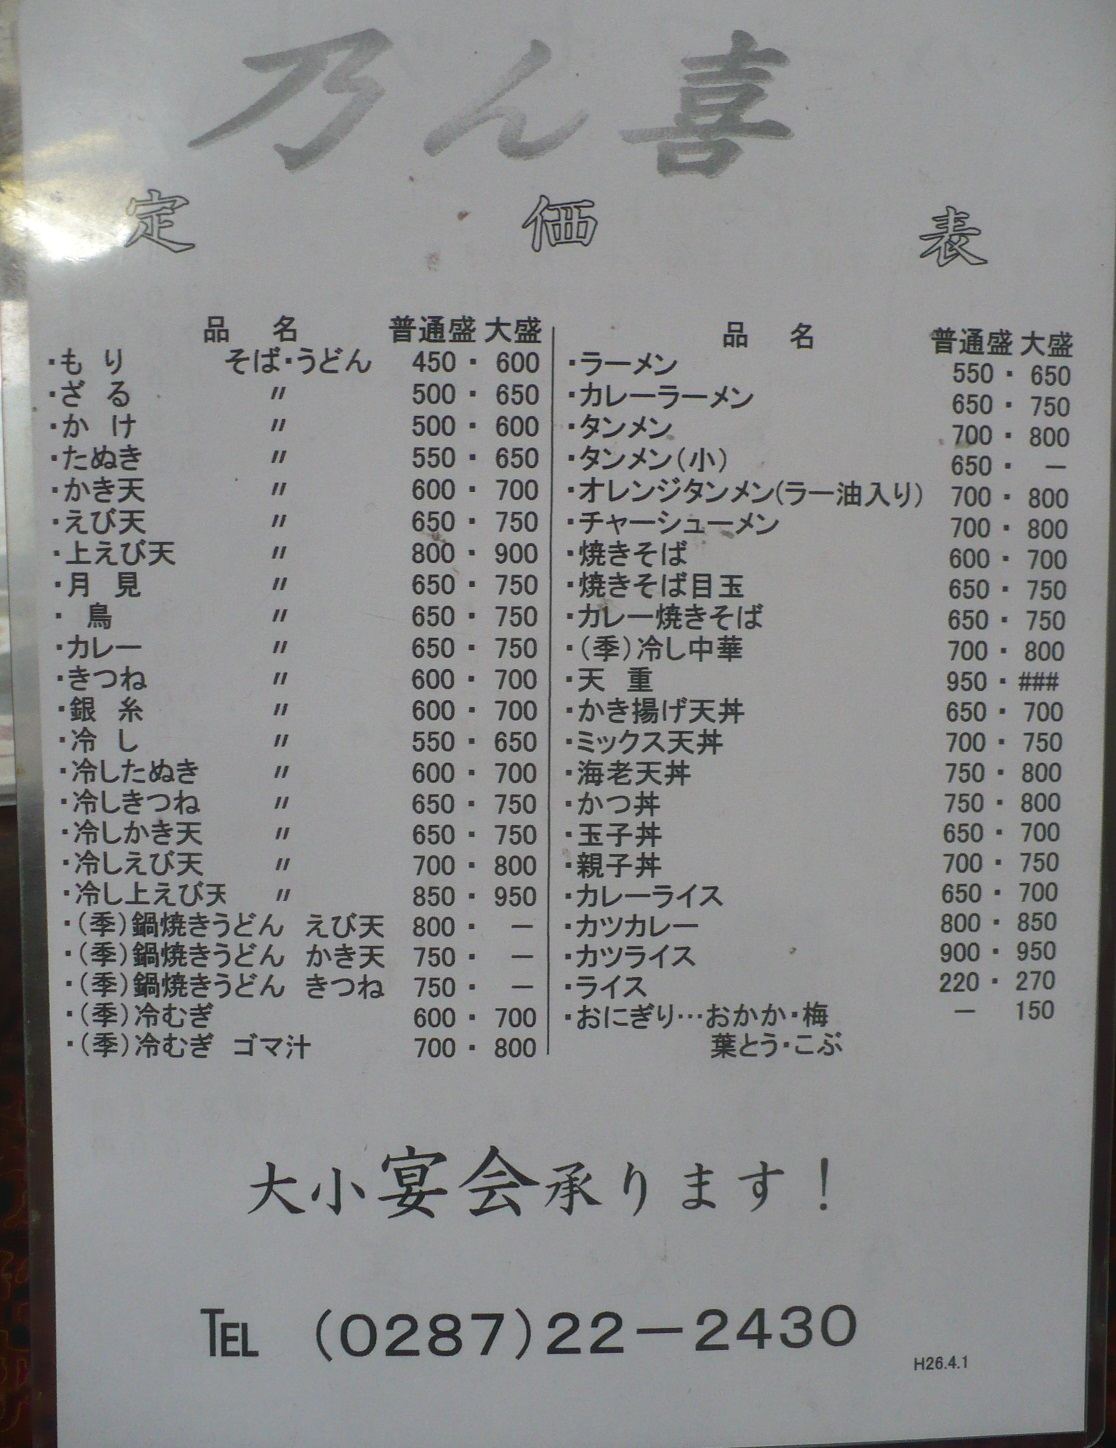 乃ん喜
定 価 表
品 名 普通盛 大盛
・もり そば・うどん 450・600
・ざる 〃 500・650
・かけ 〃 500・600
・たぬき 〃 550・650
・かき天 〃 600・700
・えび天 〃 650・750
・上えび天 〃 800・900
・月見 〃 650・750
・鳥 〃 650・750
・カレー 〃 650・750
・きつね 〃 600・700
・銀糸 〃 600・700
・冷し 〃 550・650
・冷したぬき 〃 600・700
・冷しきつね 〃 650・750
・冷しかき天 〃 650・750
・冷しえび天 〃 700・800
・冷し上えび天 〃 850・950
・(季)鍋焼きうどん えび天 800・ ー
・(季)鍋焼きうどん かき天 750・ ー
・(季)鍋焼きうどん きつね 750・ ー
・(季)冷むぎ 600・700
・(季)冷むぎ ゴマ汁 700・800
品 名 普通盛 大盛
・ラーメン 550・650
・カレーラーメン 650・750
・タンメン 700・800
・タンメン(小) 650・ ー
・オレンジタンメン(ラー油入り) 700・800
・チャーシューメン 700・800
・焼きそば 600・700
・焼きそば目玉 650・750
・カレー焼きそば 650・750
・(季)冷し中華 700・800
・天重 950・###
・かき揚げ天丼 650・700
・ミックス天丼 700・750
・海老天丼 750・800
・かつ丼 750・800
・玉子丼 650・700
・親子丼 700・750
・カレーライス 650・700
・カツカレー 800・850
・カツライス 900・950
・ライス 220・270
・おにぎり…おかか・梅 ー 150
葉とう・こぶ
大小宴会承ります!
TEL (0287)22-2430
H26.4.1